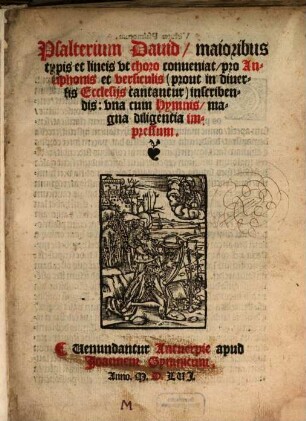 Psalterium Dauid / maioribus
typis et lineis vt choro conueniat / pro An-
tiphonis et versiculis (prout in diuer-
sis Ecclesijs cantantur) inscriben-
dis: vna cum Hymnis / ma-
gna diligentia im-
pressum.
Uenundantur Antuerpie apud
Joannem Gymnicum
Anno. M. D. LVI.
M